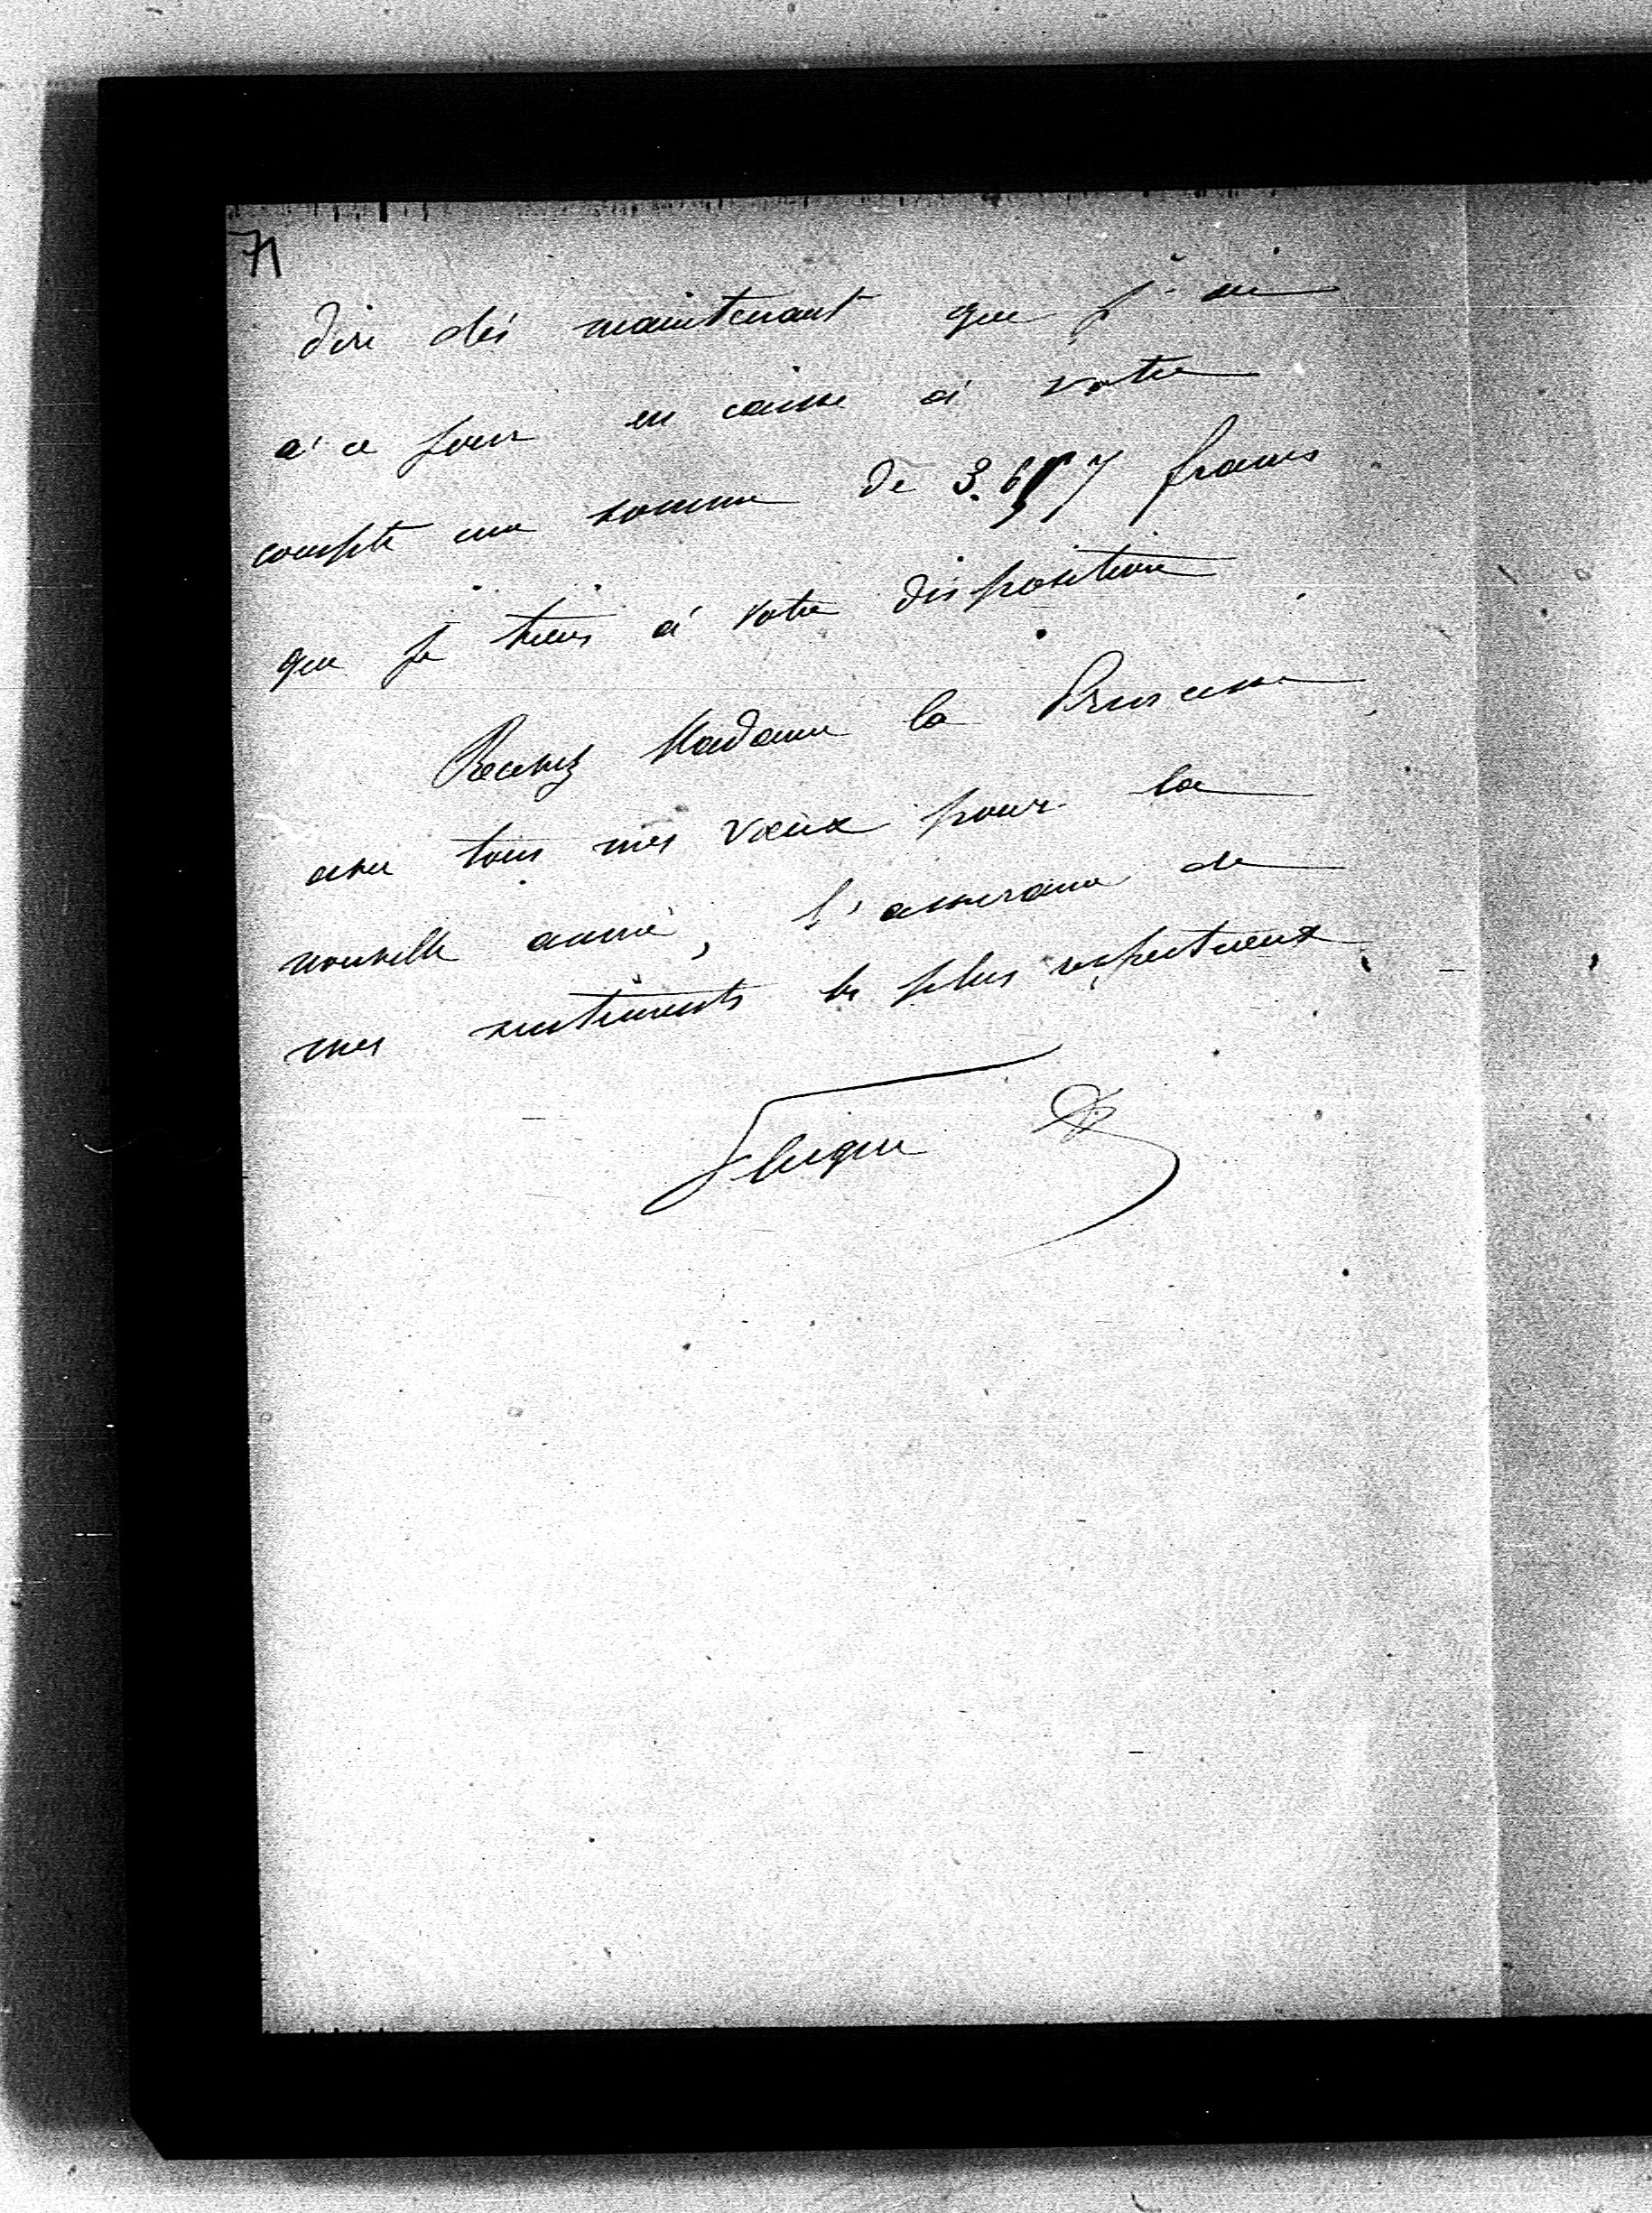 71
dire dès maintenant que j'ai
à ce jour en caisse à votre
compte une somme de 3.657 francs
que je tiens à votre disposition
Recevez Madame la Princesse
avec tous mes vœux pour la
nouvelle année, l'assurance de
mes sentiments les plus respectueux